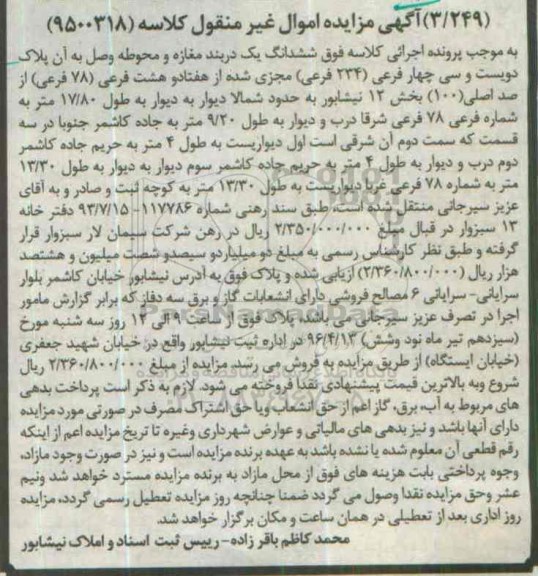 (۳/۲۴۹) آگهی مزایده اموال غیر منقول کلاسه (۹۵۰۰۳۱۸)
به موجب پرونده اجرائی کلاسه فوق ششدانگ یک دربند مغازه و محوطه وصل به آن پلاک
دویست و سی چهار فرعی (۲۳۴ فرعی) مجزی شده از هفتادو هشت فرعی (۷۸ فرعی) از
صد اصلی(۱۰۰) بخش ۱۲ نیشابور به حدود شمالا دیوار به دیوار به طول ۱۷/۸۰ متر به
شماره فرعی ۷۸ فرعی شرقا درب و دیوار به طول ۹/۲۰ متر به جاده کاشمر جنوبا در سه
قسمت که سمت دوم آن شرقی است اول دیواریست به طول ۴ متر به حریم جاده کاشمر
دوم درب و دیوار به طول ۴ متر به حریم جاده کاشمر سوم دیوار به دیوار به طول ۱۳/۳۰
متر به شماره ۷۸ فرعی غربا دیواریست به طول ۱۳/۳۰ متر به کوچه ثبت و صادر و به آقای
عزیز سیرجانی منتقل شده است، طبق سند رهنی شماره ۱۱۷۷۸۶- ۹۳/۷/۱۵ دفتر خانه
۱۳ سبزوار در قبال مبلغ ۲/۳۵۰/۰۰۰/۰۰۰ ریال در رهن شرکت سیمان لار سبزوار قرار
گرفته و طبق نظر کارشناس رسمی به مبلغ دو میلیاردو سیصدو شصت میلیون و هشتصد
هزار ریال (۲/۳۶۰/۸۰۰/۰۰۰) ارزیابی شده و پلاک فوق به آدرس نیشابور خیابان کاشمر بلوار
سرایانی- سرایانی ۶ مصالح فروشی دارای انشعابات گاز و برق سه دفاز که برابر گزارش مامور
اجرا در تصرف عزیز سیرجانی می باشد، پلاک فوق از ساعت ۹ الی ۱۲ روز سه شنبه مورخ
(سیزدهم تیر ماه نود وشش) ۹۶/۴/۱۳ در اداره ثبت نیشابور واقع در خیابان شهید جعفری
(خیابان ایستگاه) از طریق مزایده به فروش می رسد، مزایده از مبلغ ۲/۳۶۰/۸۰۰/۰۰۰ ریال
شروع وبه بالاترین قیمت پیشنهادی نقدا فروخته می شود. لازم به ذکر است پرداخت بدهی
های مربوط به آب، برق، گاز اعم از حق انشعاب ویا حق اشتراک مصرف در صورتی مورد مزایده
دارای آنها باشد و نیز بدهی های مالیاتی و عوارض شهرداری وغیره تا تریخ مزایده اعم از اینکه
رقم قطعی آن معلوم شده یا نشده باشد به عهده برنده مزایده است و نیز در صورت وجود مازاد،
وجوه پرداختی بابت هزینه های فوق از محل مازاد به برنده مزایده مسترد خواهد شد ونیم
عشر وحق مزایده نقدا وصول می گردد ضمنا چنانچه روز مزایده تعطیل رسمی گردد، مزایده
روز اداری بعد از تعطیلی در همان ساعت و مکان برگزار خواهد شد.
محمد کاظم باقر زاده- رییس ثبت اسناد و املاک نیشابور